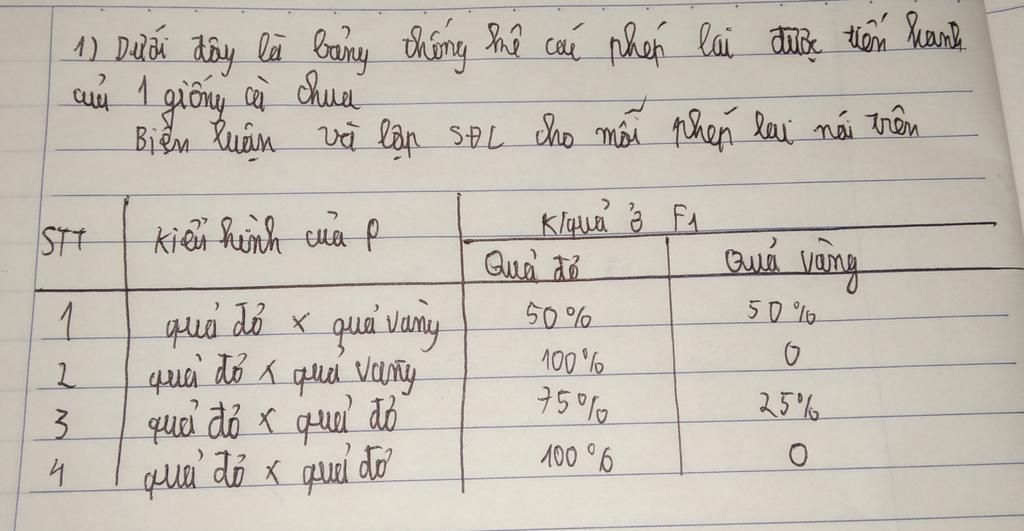 1) Dưới đây là bảng thống kê các phép lai được tiến hanh
của 1 giống cà chua
Biện luận và lập SĐL cho mỗi phép lai nói trên
STT Kiểu hình của P K/quả ở F1
Quả đỏ Quả vàng
1 quả đỏ x quả vàng 50% 50%
2 quả đỏ x quả vàng 100% 0
3 quả đỏ x quả đỏ 75% 25%
4 quả đỏ x quả đỏ 100% 0